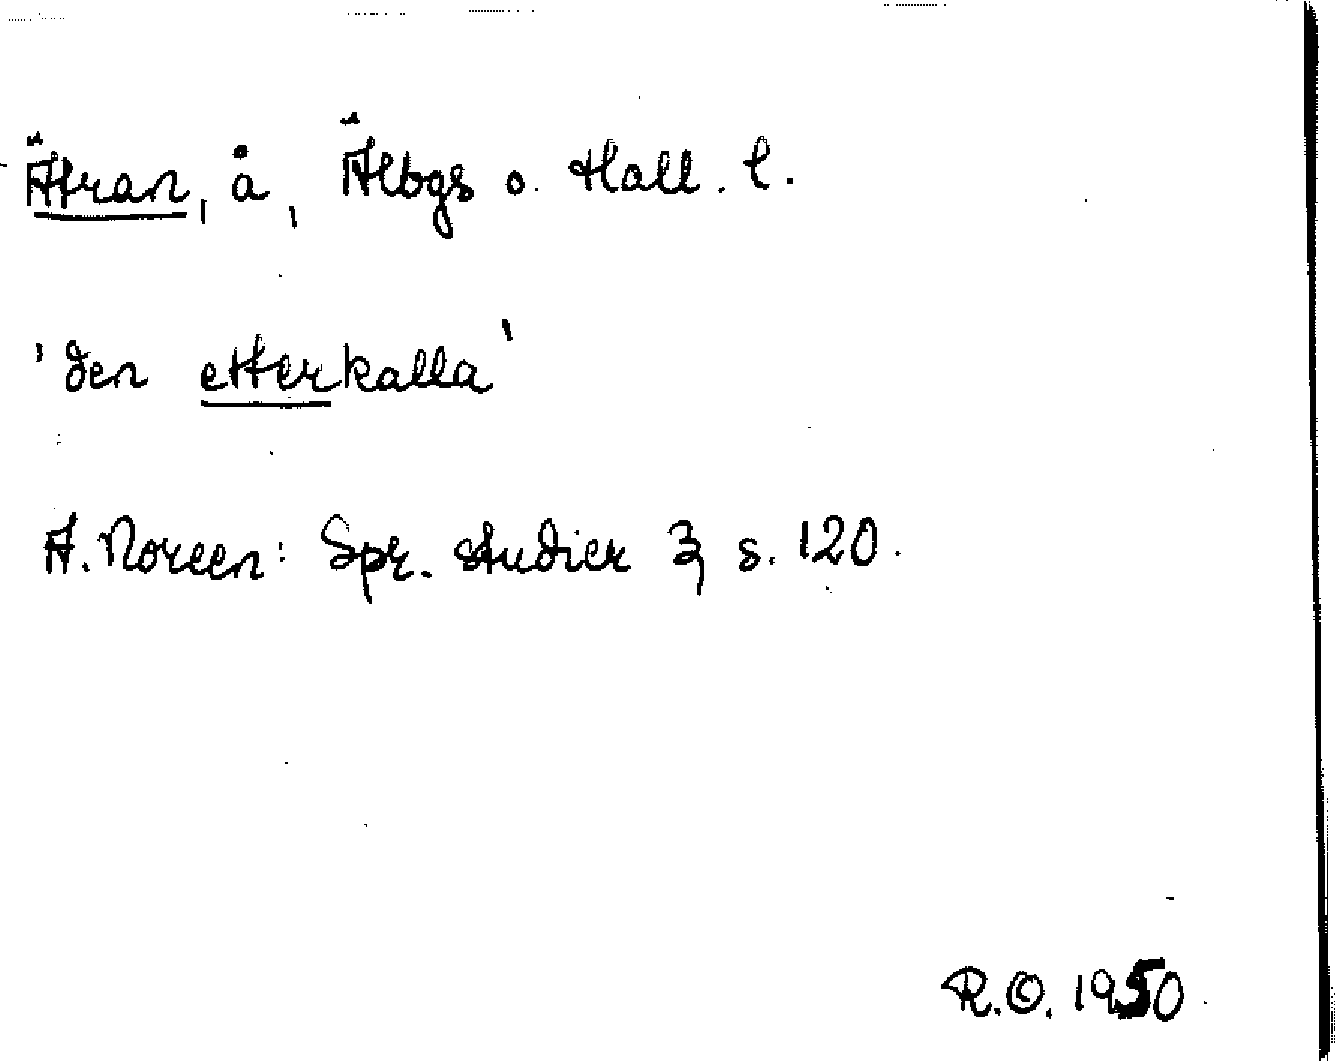 Ätran, å, Älvbgs o. Hall. l.
'den etterkalla'
A. Noreen: Spr. studier 3, s. 120.
R.O. 1950